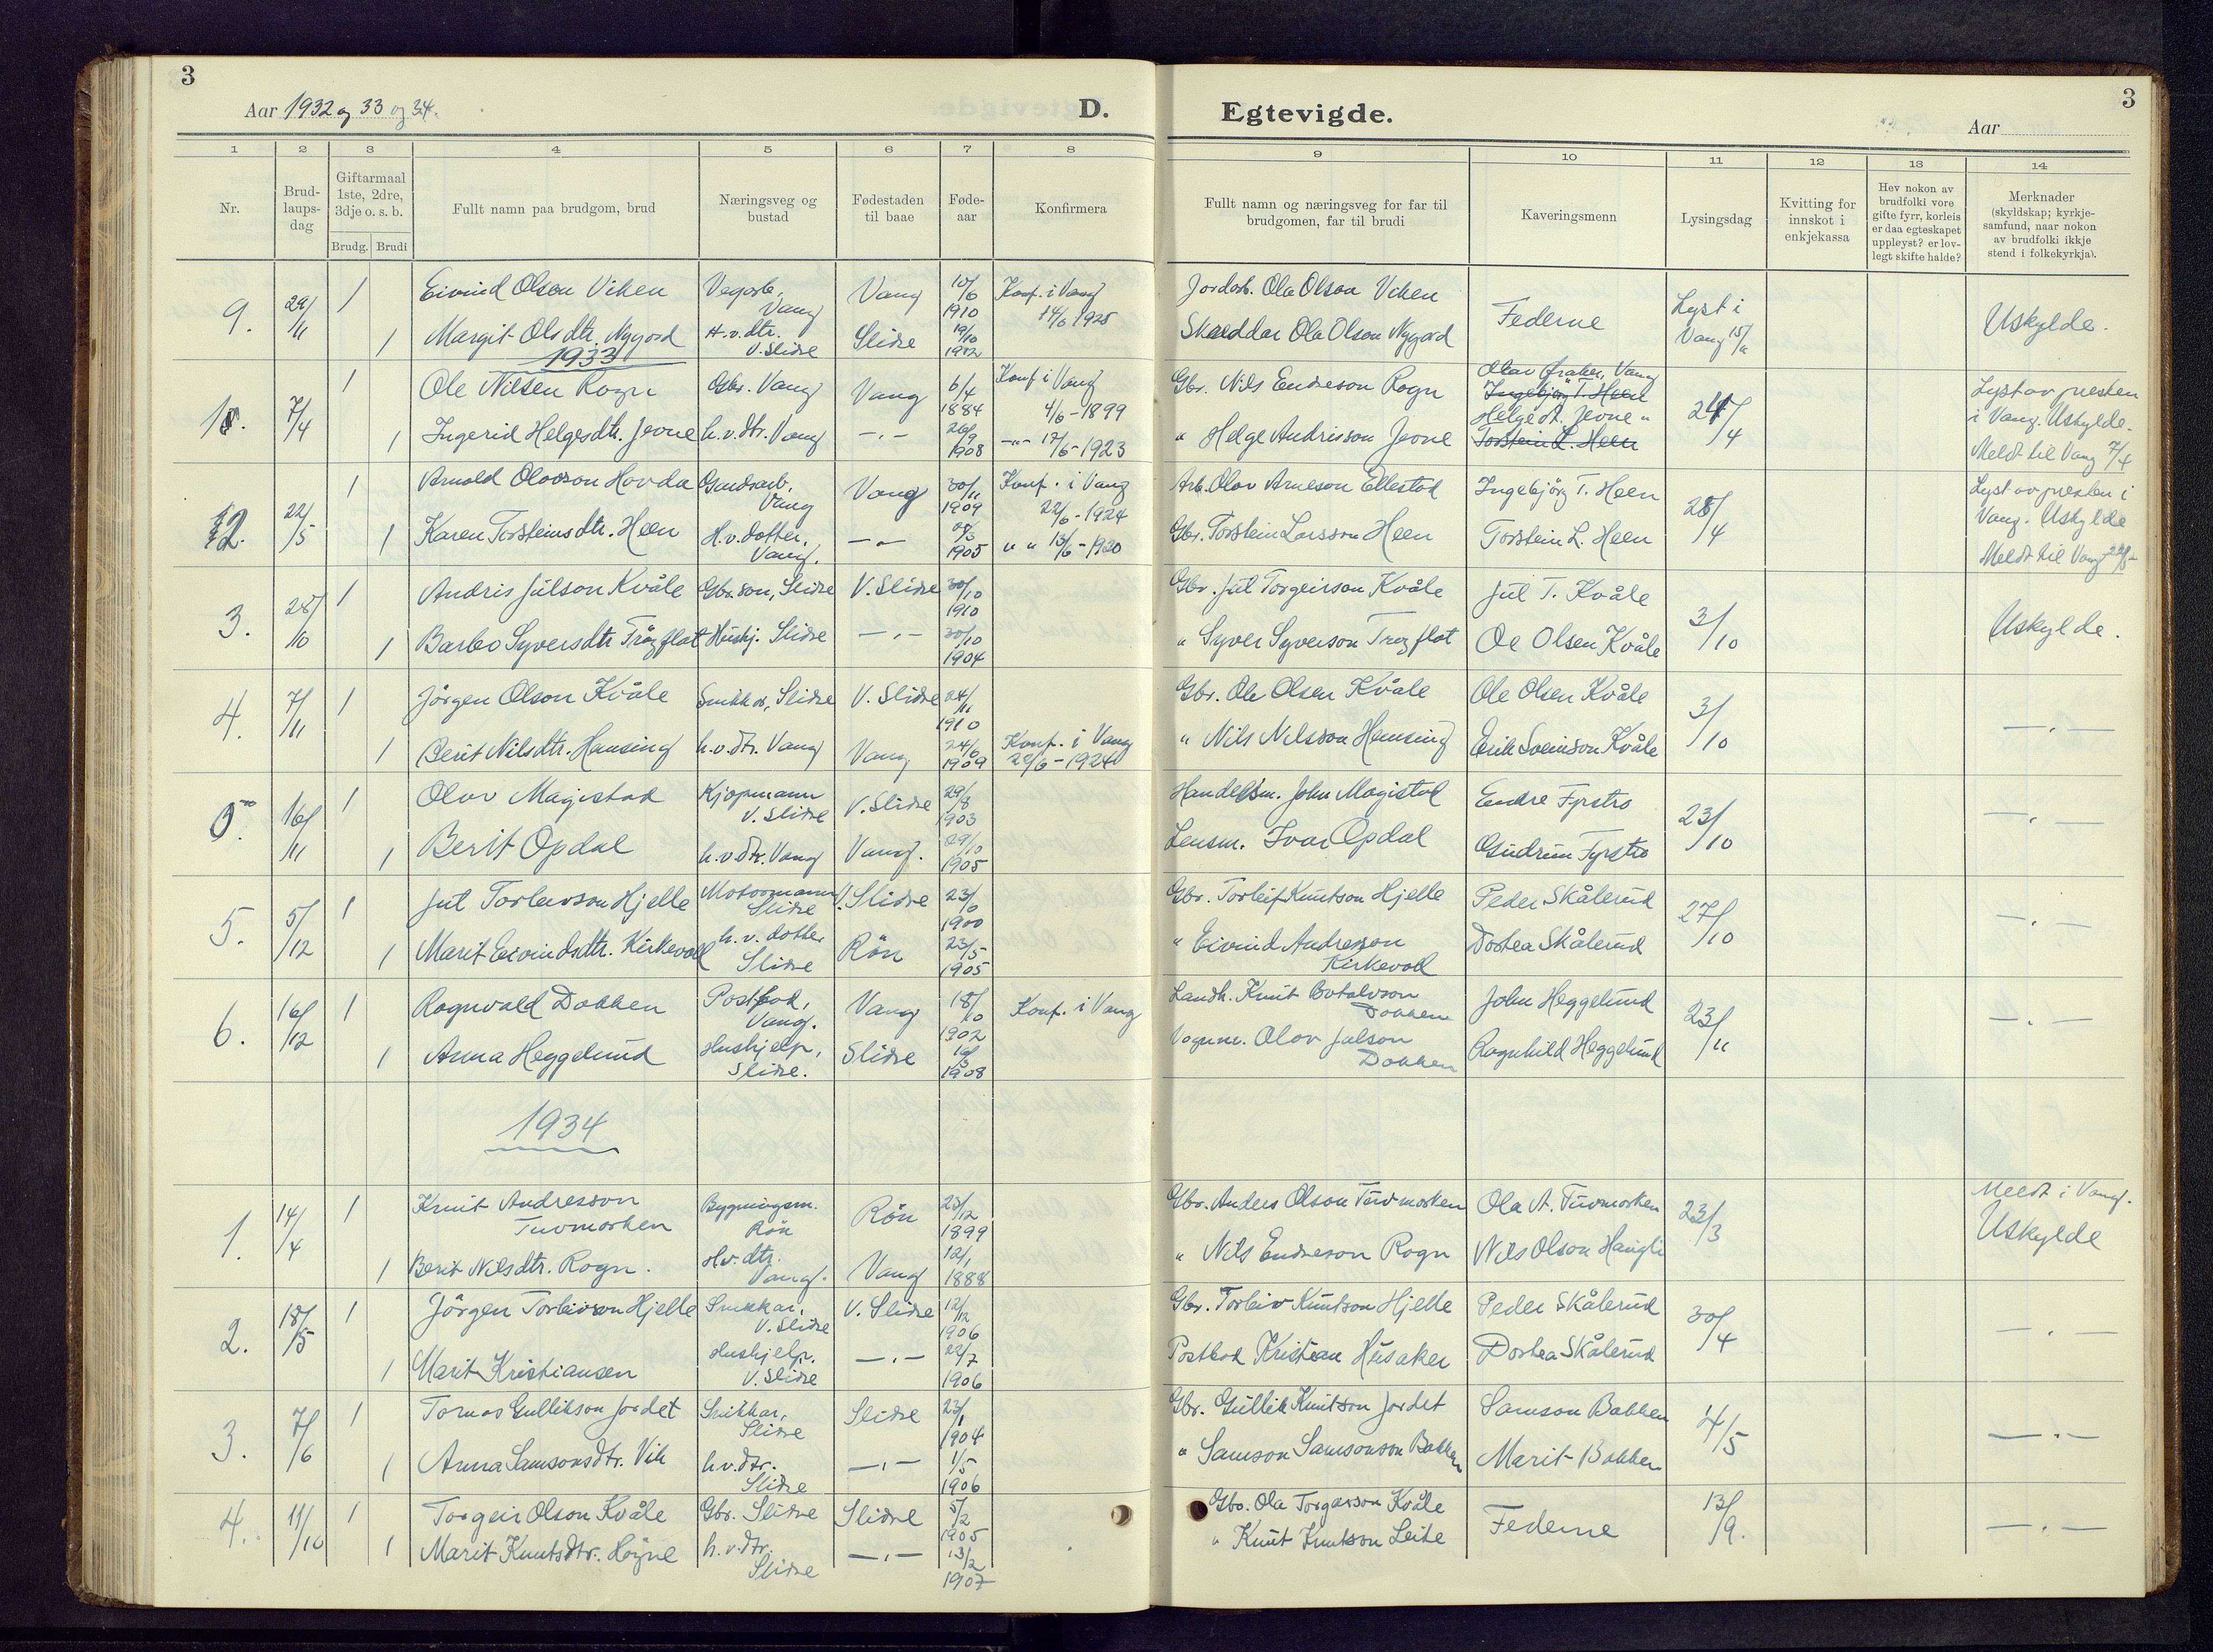 3
Aar 1932 og 33 og 34.
D.
1 2 3 4 5 6 7 8
Nr.
Brud-
laups-
dag
Giftarmaal
1ste, 2dre,
3dje o. s. b.
Brudg. Brudi
Fullt namn paa brudgom, brud
Næringsveg og
bustad
Fødestaden
til baae
Føde-
aar
Konfirmera
9. 29/11 1 Eivind Olsen Viken Vegarb. Vang Vang 10/6 1910 Konf. i Vang 14/6 1925
1 Margit Olsdtr. Nygord H.v.dtr. V. Slidre Slidre 19/10 1912
1933
7/4 1 Ole Nilsen Rogn Gbr. Vang Vang 6/4 1884 Konf i Vang 4/6-1899
1 Ingerid Helgesdtr. Jevne h.v.dtr. Vang -"- 26/9 1908 -"- 17/6-1923
2. 22/5 1 Arnold Olavson Hovda Gardsarb. Vang Vang 30/11 1909 Konf. i Vang 22/6-1924
1 Karen Torsteinsdtr. Heen H.v.dotter, Vang. -"- 1905 " " 13/6-1920
3. 28/10 1 Andris Julson Kvåle Gbr.son, Slidre V. Slidre 30/10 1910
1 Barbo Syversdtr Trøgflat Hushj. Slidre -"- 30/10 1904
4. 7/11 1 Jörgen Olson Kvåle Snikkar, Slidre V. Slidre 24/11 1910
1 Berit Nilsdtr. Hamsing h.v.dtr. Vang Vang 24/6 1909 Konf. i Vang 22/6-1924
16/11 1 Olav Magistad Kjøpmann V. Slidre V. Slidre 29/8 1903
1 Berit Opdal h.v.dtr. Vang Vang. 29/10 1905
5. 5/12 1 Jul Torleivson Hjelle Motormann Slidre V. Slidre 23/6 1900
1 Marit Eivindsdtr. Kirkevoll h.v. dotter Slidre Rön 23/5 1905
6. 16/12 1 Ragnvald Dokken Postbod, Vang. Vang 18/10 1902 Konf. i Vang
1 Anna Heggelund Hushjelp, Slidre. Slidre 1908
1934
1. 14/4 1 Knut Andresson Tuvmarken Bygningsm. Rön Rön 23/12 1899
1 Berit Nilsdtr. Rogn. Hv.dtr. Vang. Vang 12/1 1888
2. 18/5 1 Jörgen Torleivson Hjelle Snikkar, V. Slidre V. Slidre 12/12 1906
1 Marit Kristiansen Hushjelp. V. Slidre -"- 22/7 1906
3. 7/6 1 Tomas Gullikson Jordet Snikkar, Slidre Slidre 23/1 1904
1 Anna Samsonsdtr. Vik h.v.dtr. Slidre -"- 1/5 1906
4. 11/10 1 Torgeir Olson Kvåle Gbr. Slidre Slidre 5/2 1905
1 Marit Knutsdtr. Høyne h.v.dtr. Slidre -"- 13/2 1907
Egtevigde.
Aar
3
9 10 11 12 13 14
Fullt namn og næringsveg for far til
brudgomen, far til brudi
Kaveringsmenn
Lysingsdag
Kvitting for
innskot i
enkjekassa
Hev nokon av
brudfolki vore
gifte fyrr, korleis
er daa egteskapet
uppløyst? er lov-
legt skifte halde?
Merknader
(skyldskap; kyrkje-
samfund, naar nokon
av brudfolki ikkje
stend i folkekyrkja).
Jordarb. Ola Olson Viken Federne Lyst i Vang 15/11 Uskylde.
Skreddar Ola Olson Nygard
Gbr. Nils Endreson Rogn Olav Øraker, Vang 24/4 Lyst av presten i Vang. Uskylde.
Ingebjörg T. Heen
" Helge Andrisson Jevne Helge A. Jevne " Meldt til Vang 7/4
Torstein L. Heen
Arb. Olav Arneson Ellestad Ingebjörg T. Heen 28/4 Lyst av presten i Vang. Uskylde
Gbr. Torstein Larsson Heen Torstein L. Heen Meldt til Vang 22/5
Gbr. Jul Torgeirson Kvåle Jul T. Kvåle 3/10 Uskylde.
" Syver Syverson Trøgflat Ole Olsen Kvåle
Gbr. Ole Olsen Kvåle Ole Olsen Kvåle 3/10 -"-
" Nils Nilsson Hamsing Erik Sveinson Kvåle
Handelsm. John Magistad Endre Fystro 23/10 -"-
Lensm. Ivar Opdal Gudrun Fystro
Gbr. Torleif Knutson Hjelle Peder Skålerud 27/10 -"-
" Eivind Andresson Kirkevoll Dortea Skålerud
Landh. Knut Botolvson Dokken John Heggelund 23/11 -"-
Vognm. Olav Julson Dokken Ragnhild Heggelund
Gbr. Anders Olson Tuvmarken Ola A. Tuvmarken 23/3 Meldt i Vang. Uskylde
" Nils Endreson Rogn Nils Olson Haugli
Gbr. Torleiv Knutson Hjelle Peder Skålerud 30/4 -"-
Postbod Kristian Husaker Dortea Skålerud
Gbr. Gullik Knutson Jordet Samson Bakken 4/5 -"-
" Samson Samsonson Bakken Marit Bakken
Gbr. Ola Torgerson Kvåle Federne 13/9. -"-
" Knut Knutson Leite